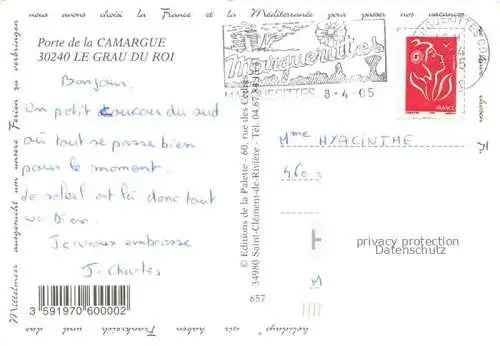 nous avons choisi la France et la Méditerranée pour passer nos vacances
Porte de la CAMARGUE
30240 LE GRAU DU ROI
Bonjour,
Un petit coucou du sud
où tout se passe bien
pour le moment.
Le soleil est là donc tout
va bien.
Je vous embrasse
J. Charles
3 591970 600002
Mittelmeer ausgesucht um unsere Ferien zu verbringen
© Editions de la Palette - 60, rue des
34980 Saint-Clément-de-Rivière - Tél. 04.67
657
Marguerittes
8-4-05
FRANCE
Mme HYACINTHE
460
M
privacy protection
Datenschutz
holidays wir haben Frankreich und das